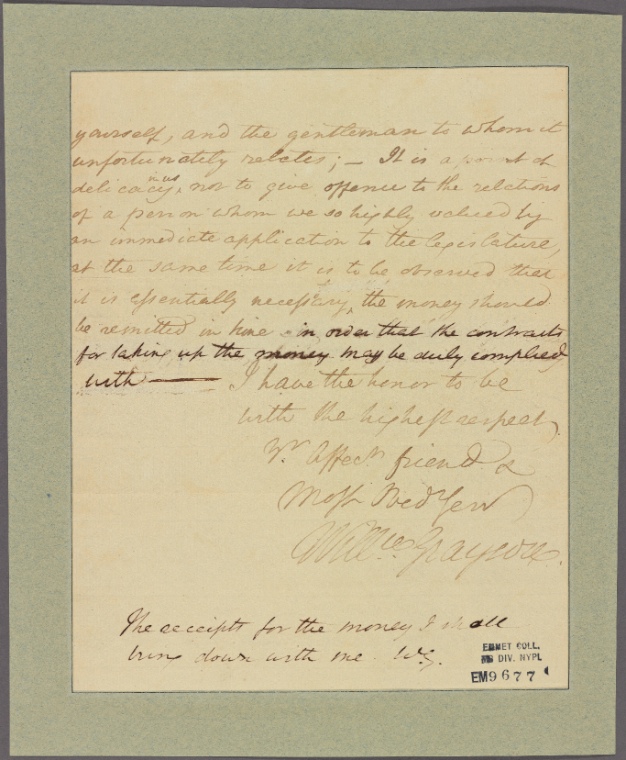 yourself, and the gentleman to whom it
unfortunately relates; — It is a point of
delicacy in us, not to give offence to the relations
of a person whom we so highly valued by
an immediate application to the legislature,
at the same time it is to be observed that
it is essentially necessary, the money should
be remitted in time in order that the contracts
for taking up the money may be duly complied
with —— I have the honor to be
with the highest respect,
Yr. Affect. friend &
Most Obed Serv
Willm Grayson.
The receipts for the money I shall
bring down with me. WG.
EMMET COLL.
MS DIV. NYPL
EM9677